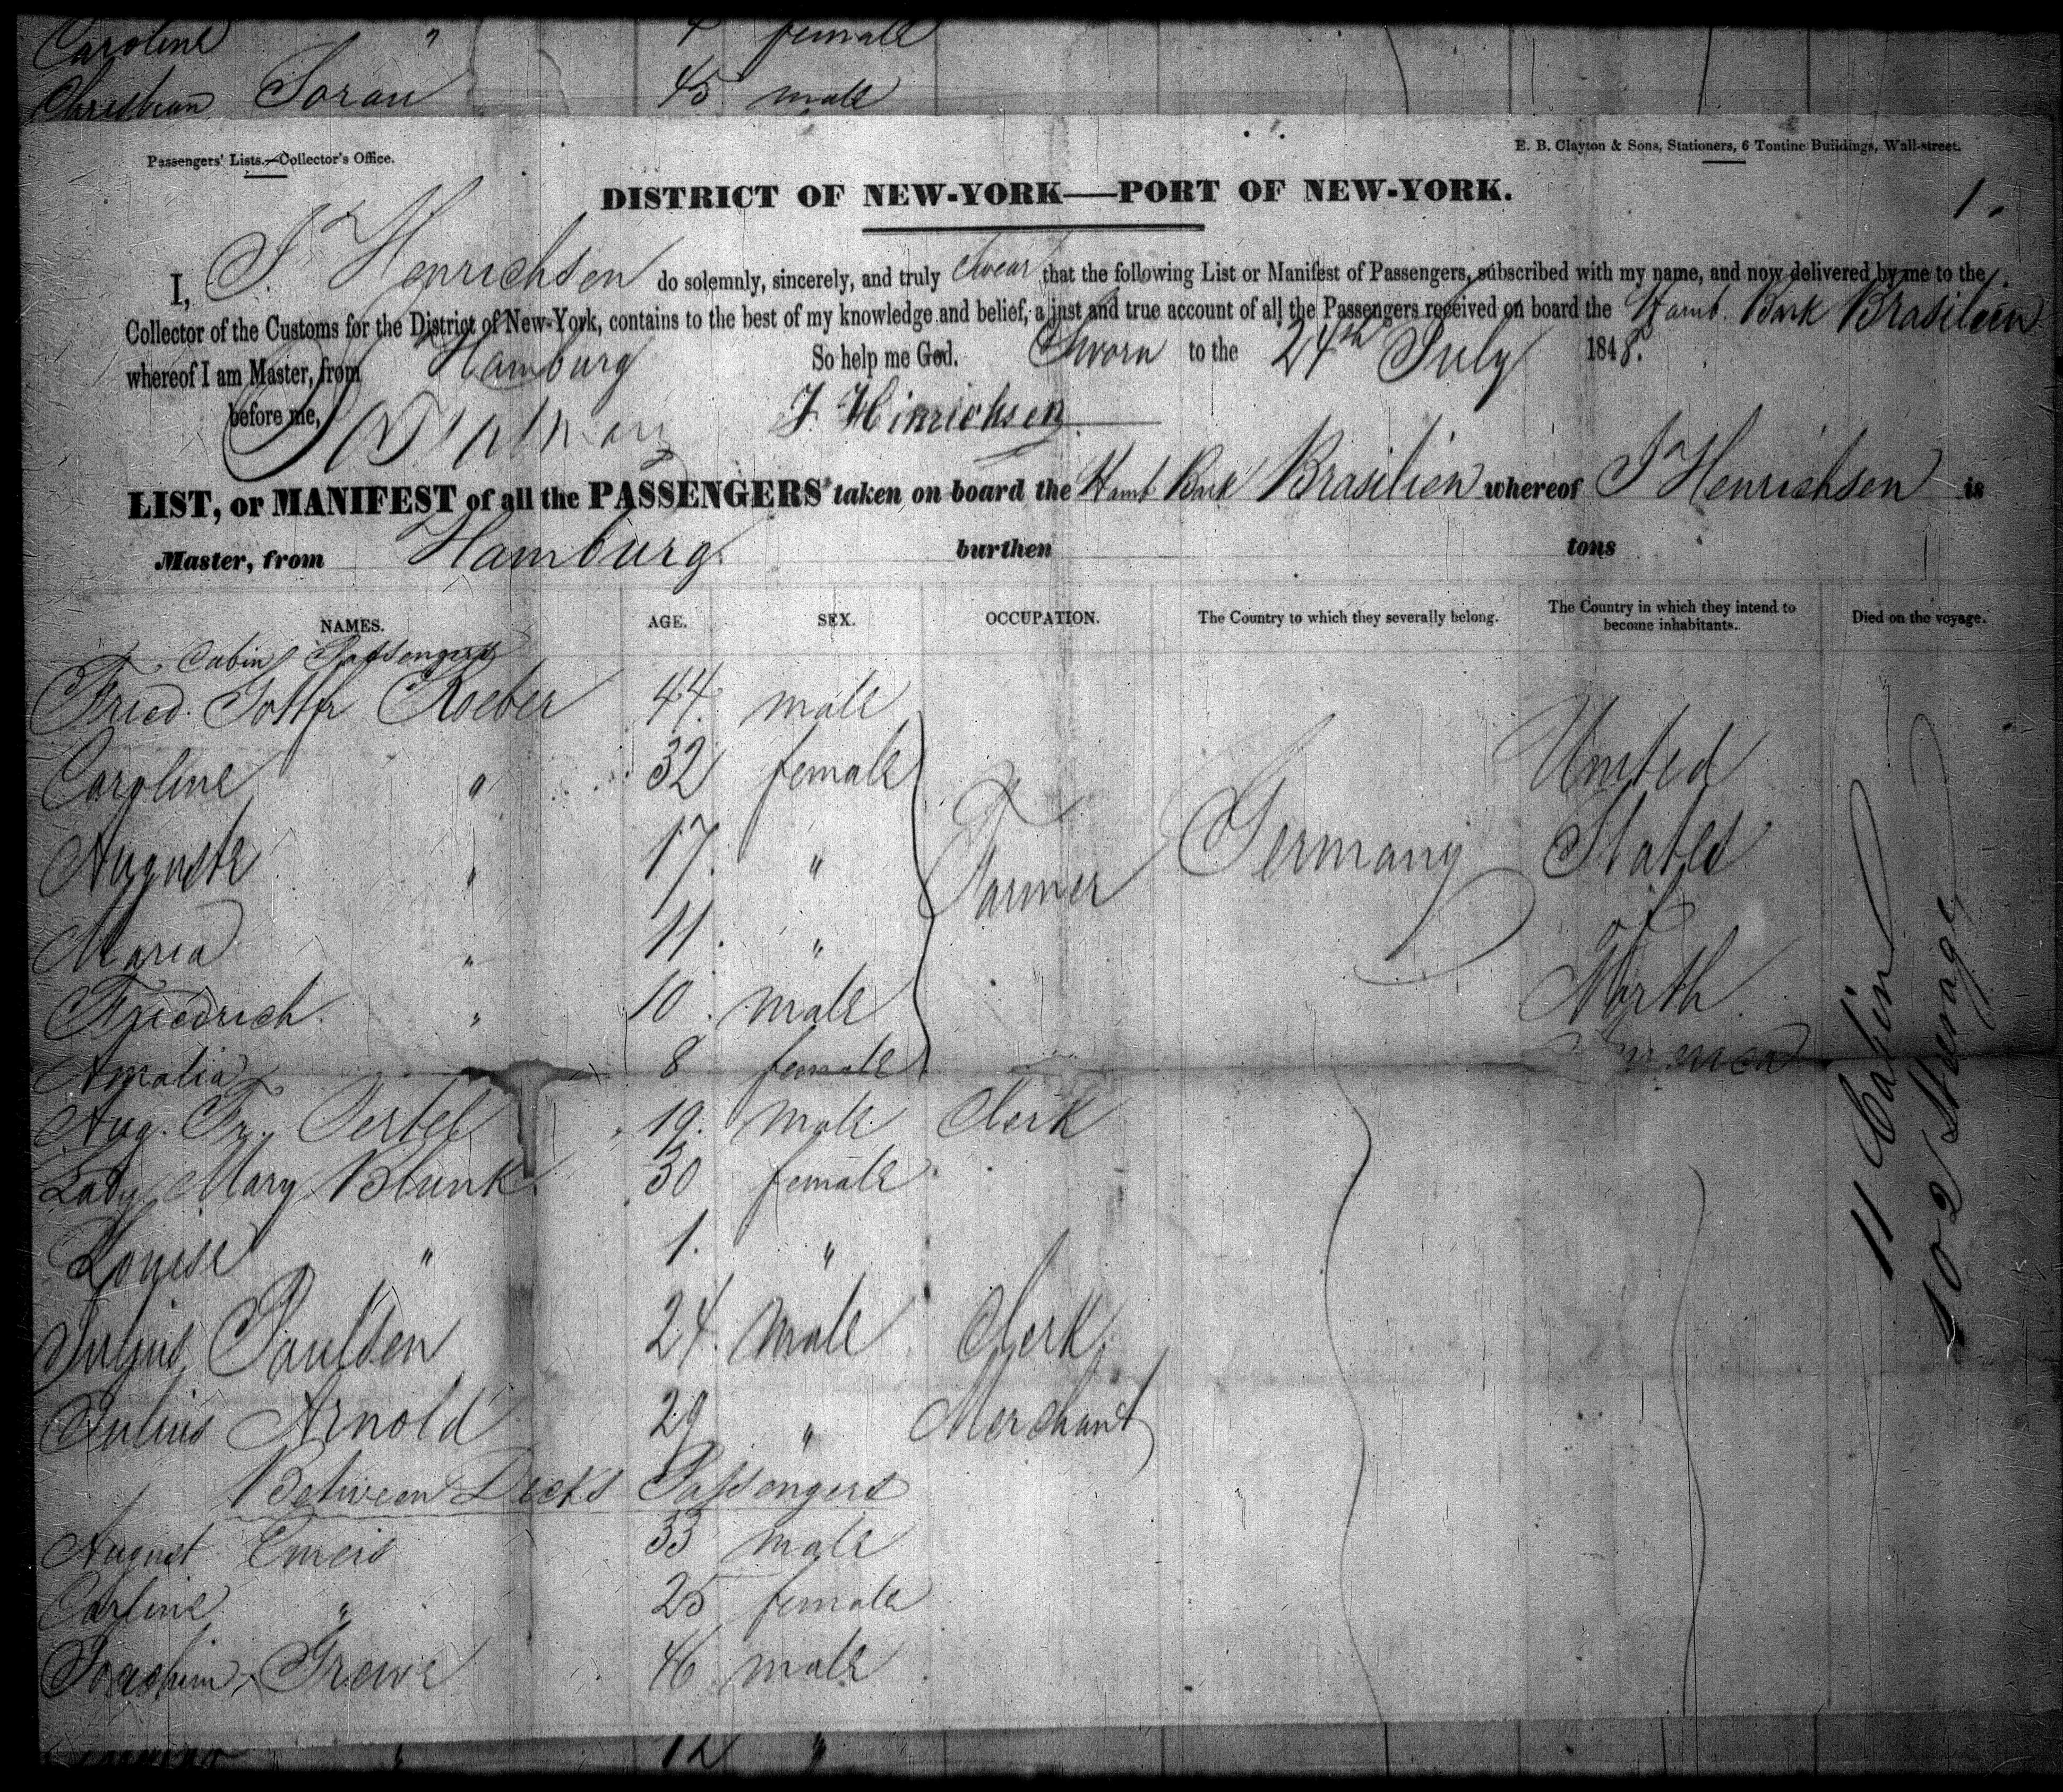 Caroline " 4 female
Christian Sorau 45 male
Passengers' Lists.—Collector's Office.
E. B. Clayton & Sons, Stationers, 6 Tontine Buildings, Wall-street.
DISTRICT OF NEW-YORK—PORT OF NEW-YORK.
1.
I, J. Henrichsen do solemnly, sincerely, and truly swear that the following List or Manifest of Passengers, subscribed with my name, and now delivered by me to the
Collector of the Customs for the District of New-York, contains to the best of my knowledge and belief, a just and true account of all the Passengers received on board the Hamb. Bark Brasilien
whereof I am Master, from Hamburg So help me God. Sworn to the 24th July 1848.
before me, J. Hinrichsen
LIST, or MANIFEST of all the PASSENGERS taken on board the Hamb Bark Brasilien whereof J Henrichsen is
Master, from Hamburg. burthen tons
NAMES. AGE. SEX. OCCUPATION. The Country to which they severally belong. The Country in which they intend to become inhabitants. Died on the voyage.
Cabin Passengers
Fried. Gottfr Roeber 44 male
Caroline " 32 female
Auguste " 17. "
Maria " 11. "
Friedrich " 10. male
Amalia 8 female
Farmer Germany United
States
of
North
America
Aug. Fr. Oertel 19. male Clerk
Lady Mary Blunk 30 female
Louise " 1. "
Julius Paulsen 24. male Clerk
Julius Arnold 29 " Merchant
Between Decks Passengers
August Emeis 33 male
Carline " 25 female
Joachim Grewe 46 male
11 Cabin
102 Sterage
12 "